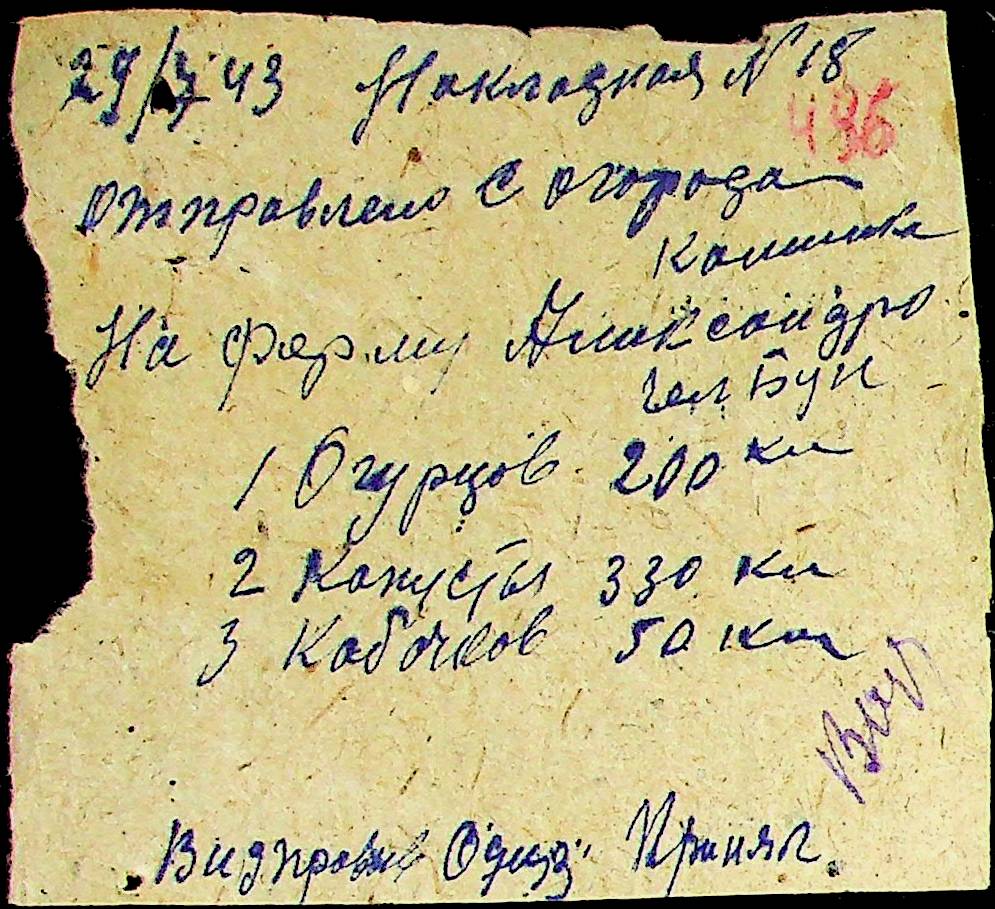 29/7 43 Накладная N 18
436
Отправлено с огорода
На ферму Александро
1 Огурцов 200 кил
2 Капусты 330 кил
3 Кабачков 50 кил
Видправив Принял